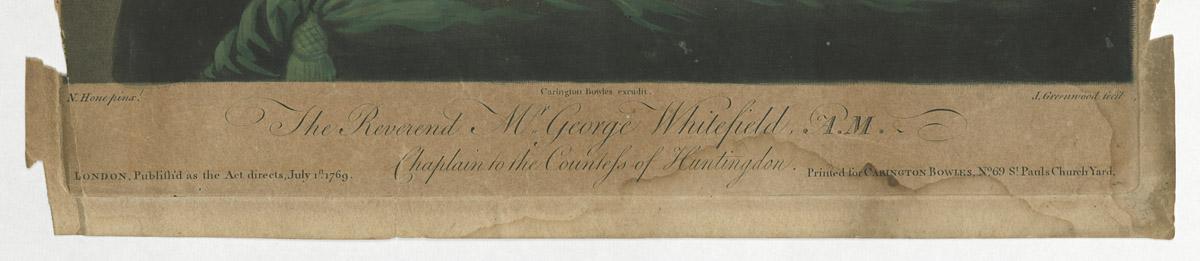 N. Hone pinx.t
Carington Bowles excudit.
J. Greenwood fecit
The Reverend Mr. George Whitefield, A.M.
Chaplain to the Counteſs of Huntingdon.
LONDON, Publiſh'd as the Act directs, July 1st. 1769.
Printed for CARINGTON BOWLES, No. 69 St. Pauls Church Yard.